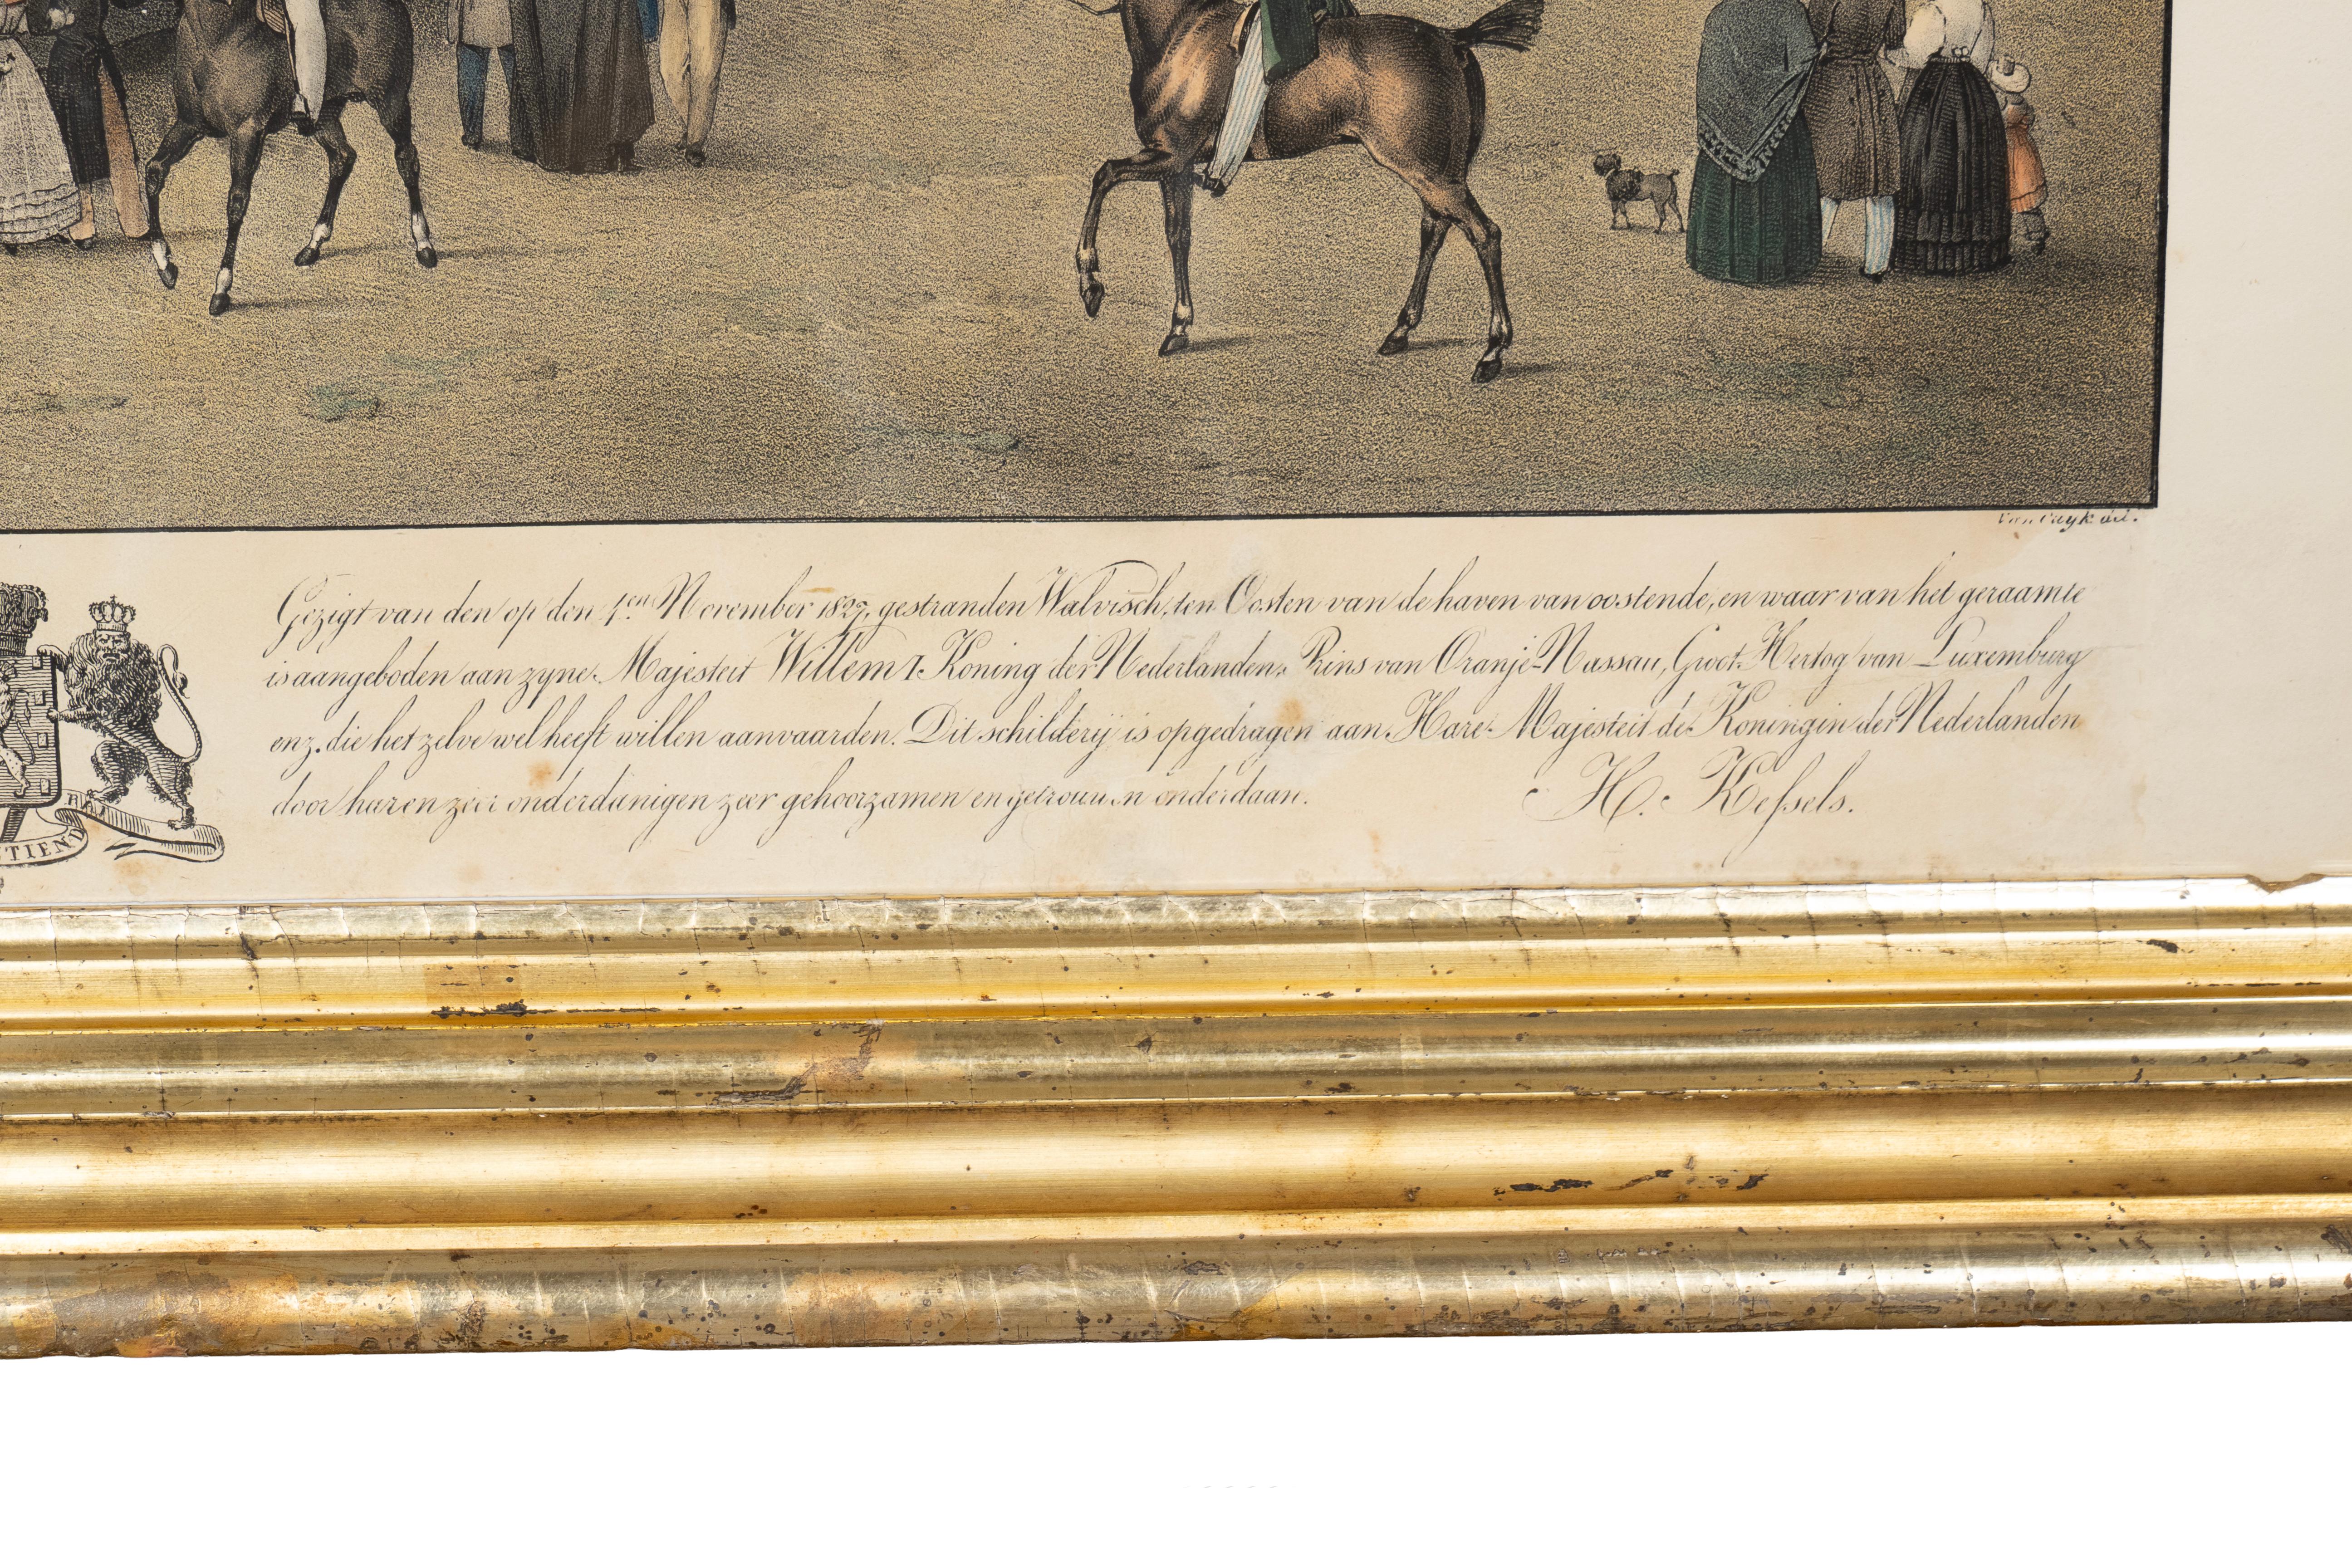 Van Cuyk del.
Gezigt van den op den 4.en November 1827, gestranden Walvisch, ten Oosten van de haven van oostende, en waar van het geraamte
is aangeboden aan zyne Majesteit Willem I. Koning der Nederlanden, Prins van Oranje-Nassau, Groot-Hertog van Luxemburg
enz. die het zelve wel heeft willen aanvaarden. Dit schilderij is opgedragen aan Hare Majesteit de Koningin der Nederlanden
door haren zeer onderdanigen zeer gehoorzamen en getrouwen onderdaan.
H. Kessels.
TIENDRAI